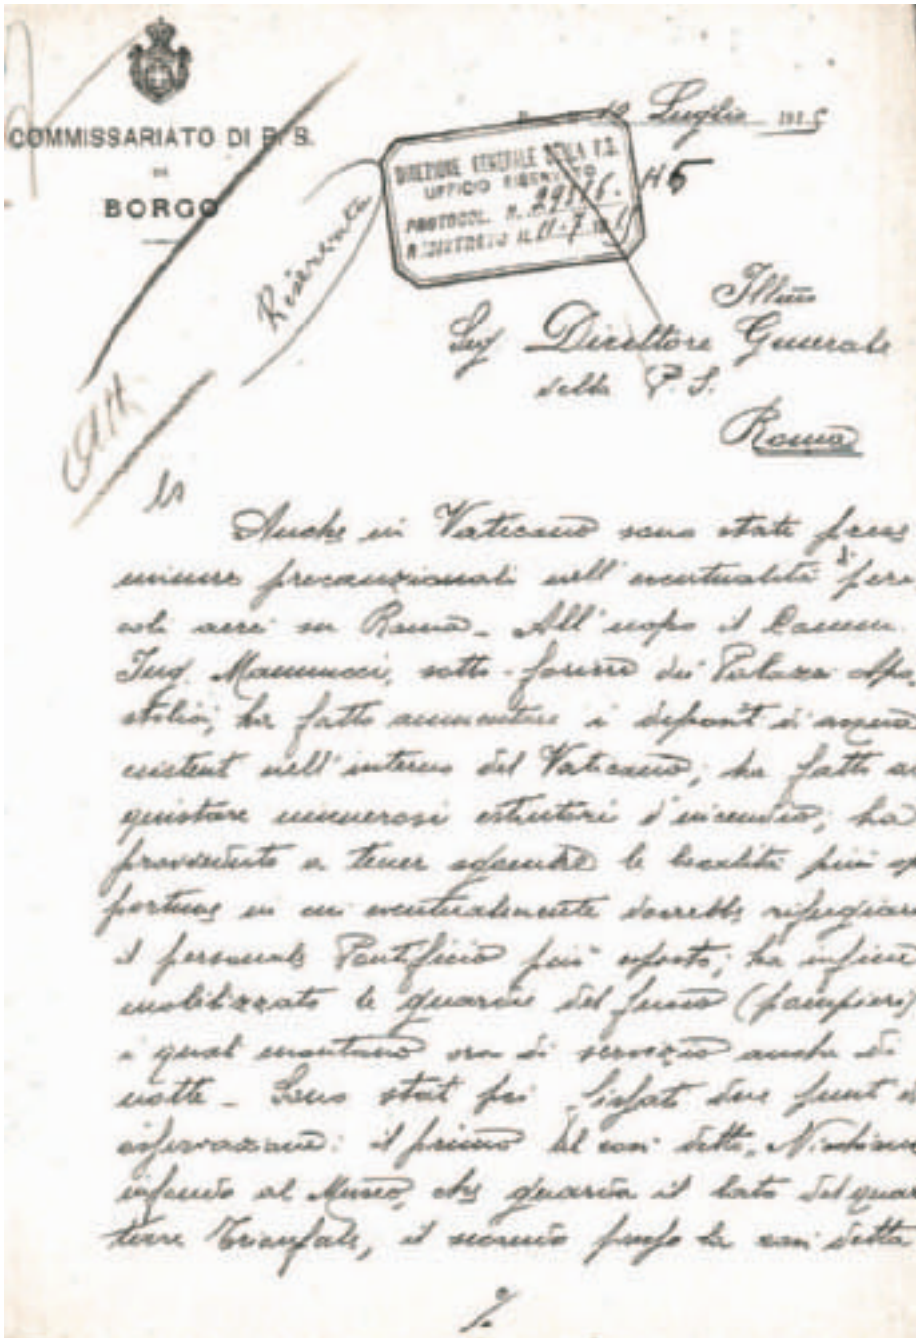 COMMISSARIATO DI P. S.
DI
BORGO
10 Luglio 1915
DIREZIONE GENERALE DELLA P.S.
UFFICIO RISERVATO
PROTOCOL. N.
REGISTRATO IL 11-7-15
H5
Riservata
Illmo
Sig Direttore Generale
della P. S.
Roma
Anche in Vaticano sono state prese
misure precauzionali nell'eventualità di peri
coli aerei su Roma_ All'uopo il Comm.
Ing. Mannucci, sotto-foriere dei Palazzi Apo
stolici, ha fatto aumentare i depositi d'acqua
esistenti nell'interno del Vaticano; ha fatto ac
quistare numerosi estintori d'incendio; ha
provveduto a tener sgombre le località più op
portune in cui eventualmente dovrebbe rifugiare
il personale Pontificio più esposto; ha infine
mobilizzato le guardie del fuoco (pompieri)
i quali montano ora di servizio anche di
notte_ Sono stati poi fissati due punti di
osservazione: il primo al così detto, Nicchione
al Museo, che guarda il lato del quar
tiere Trionfale, il secondo presso la così detta
%